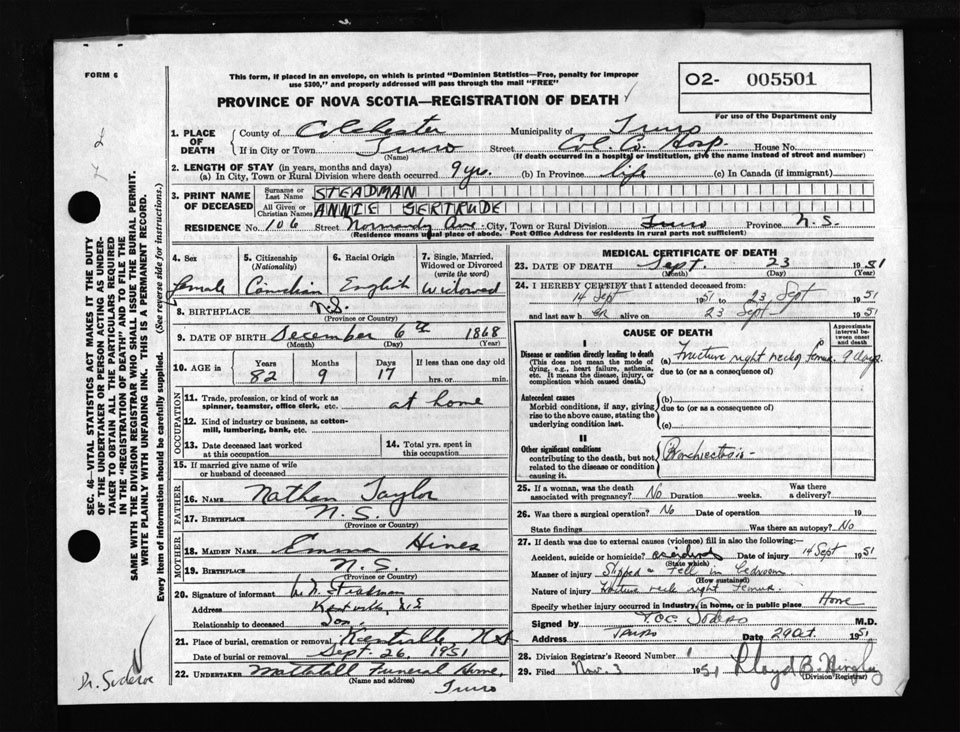 FORM 6
This form, if placed in an envelope, on which is printed "Dominion Statistics—Free, penalty for improper
use $300," and properly addressed will pass through the mail "FREE"
O2- 005501
For use of the Department only
PROVINCE OF NOVA SCOTIA—REGISTRATION OF DEATH
1. PLACE OF DEATH { County of Colchester Municipality of Truro
If in City or Town Truro Street Col. Co. Hosp. House No.
(Name) (If death occurred in a hospital or institution, give the name instead of street and number)
2. LENGTH OF STAY (in years, months and days)
(a) In City, Town or Rural Division where death occurred 9 yrs. (b) In Province life (c) In Canada (if immigrant)
3. PRINT NAME OF DECEASED { Surname or Last Name STEADMAN
All Given or Christian Names ANNIE GERTRUDE
RESIDENCE No. 106 Street Normandy Ave. City, Town or Rural Division Truro Province N.S.
(Residence means usual place of abode. Post Office Address for residents in rural parts not sufficient)
4. Sex female
5. Citizenship (Nationality) Canadian
6. Racial Origin English
7. Single, Married, Widowed or Divorced (write the word) Widowed
8. BIRTHPLACE N.S.
(Province or Country)
9. DATE OF BIRTH December 6th 1868
(Month) (Day) (Year)
10. AGE in Years 82 Months 9 Days 17 If less than one day old hrs. or min.
OCCUPATION
11. Trade, profession, or kind of work as spinner, teamster, office clerk, etc. at home
12. Kind of industry or business, as cotton-mill, lumbering, bank, etc.
13. Date deceased last worked at this occupation
14. Total yrs. spent in this occupation
15. If married give name of wife or husband of deceased
FATHER
16. NAME Nathan Taylor
17. BIRTHPLACE N.S.
(Province or Country)
MOTHER
18. MAIDEN NAME Emma Hines
19. BIRTHPLACE N.S.
(Province or Country)
20. Signature of informant
Address Kentville, N.S
Relationship to deceased Son.
21. Place of burial, cremation or removal Kentville, N.S.
Date of burial or removal Sept. 26, 1951
22. UNDERTAKER Mattatall Funeral Home,
(Name and address) Truro
MEDICAL CERTIFICATE OF DEATH
23. DATE OF DEATH Sept. 23 1951
(Month) (Day) (Year)
24. I HEREBY CERTIFY that I attended deceased from:
14 Sept 1951 to 23 Sept 1951
and last saw her alive on 23 Sept. 1951
CAUSE OF DEATH
Approximate interval between onset and death
I
Disease or condition directly leading to death (a) Fracture right neck femur. 9 days.
(This does not mean the mode of dying, e.g., heart failure, asthenia, etc. It means the disease, injury, or complication which caused death.)
due to (or as a consequence of)
Antecedent causes
Morbid conditions, if any, giving rise to the above cause, stating the underlying condition last.
(b)
due to (or as a consequence of)
(c)
II
Other significant conditions
contributing to the death, but not related to the disease or condition causing it. Bronchiectasis -
25. If a woman, was the death associated with pregnancy? No Duration weeks. Was there a delivery?
26. Was there a surgical operation? No Date of operation 19
State findings Was there an autopsy? No
27. If death was due to external causes (violence) fill in also the following:—
Accident, suicide or homicide? accident Date of injury 14 Sept 1951
(State which)
Manner of injury Slipped - Fell in bedroom
(How sustained)
Nature of injury Fracture neck right Femur.
Specify whether injury occurred in industry, in home, or in public place Home
Signed by M.D.
Address Truro Date 29 Oct. 1951
28. Division Registrar's Record Number
29. Filed Nov. 3 1951 Lloyd B.
(Division Registrar)
SEC. 46—VITAL STATISTICS ACT MAKES IT THE DUTY
OF THE UNDERTAKER OR PERSON ACTING AS UNDER-
TAKER TO OBTAIN ALL THE PARTICULARS REQUIRED
IN THE "REGISTRATION OF DEATH" AND TO FILE THE
SAME WITH THE DIVISION REGISTRAR WHO SHALL ISSUE THE BURIAL PERMIT.
WRITE PLAINLY WITH UNFADING INK. THIS IS A PERMANENT RECORD.
Every item of information should be carefully supplied. (See reverse side for instructions.)
Dr.